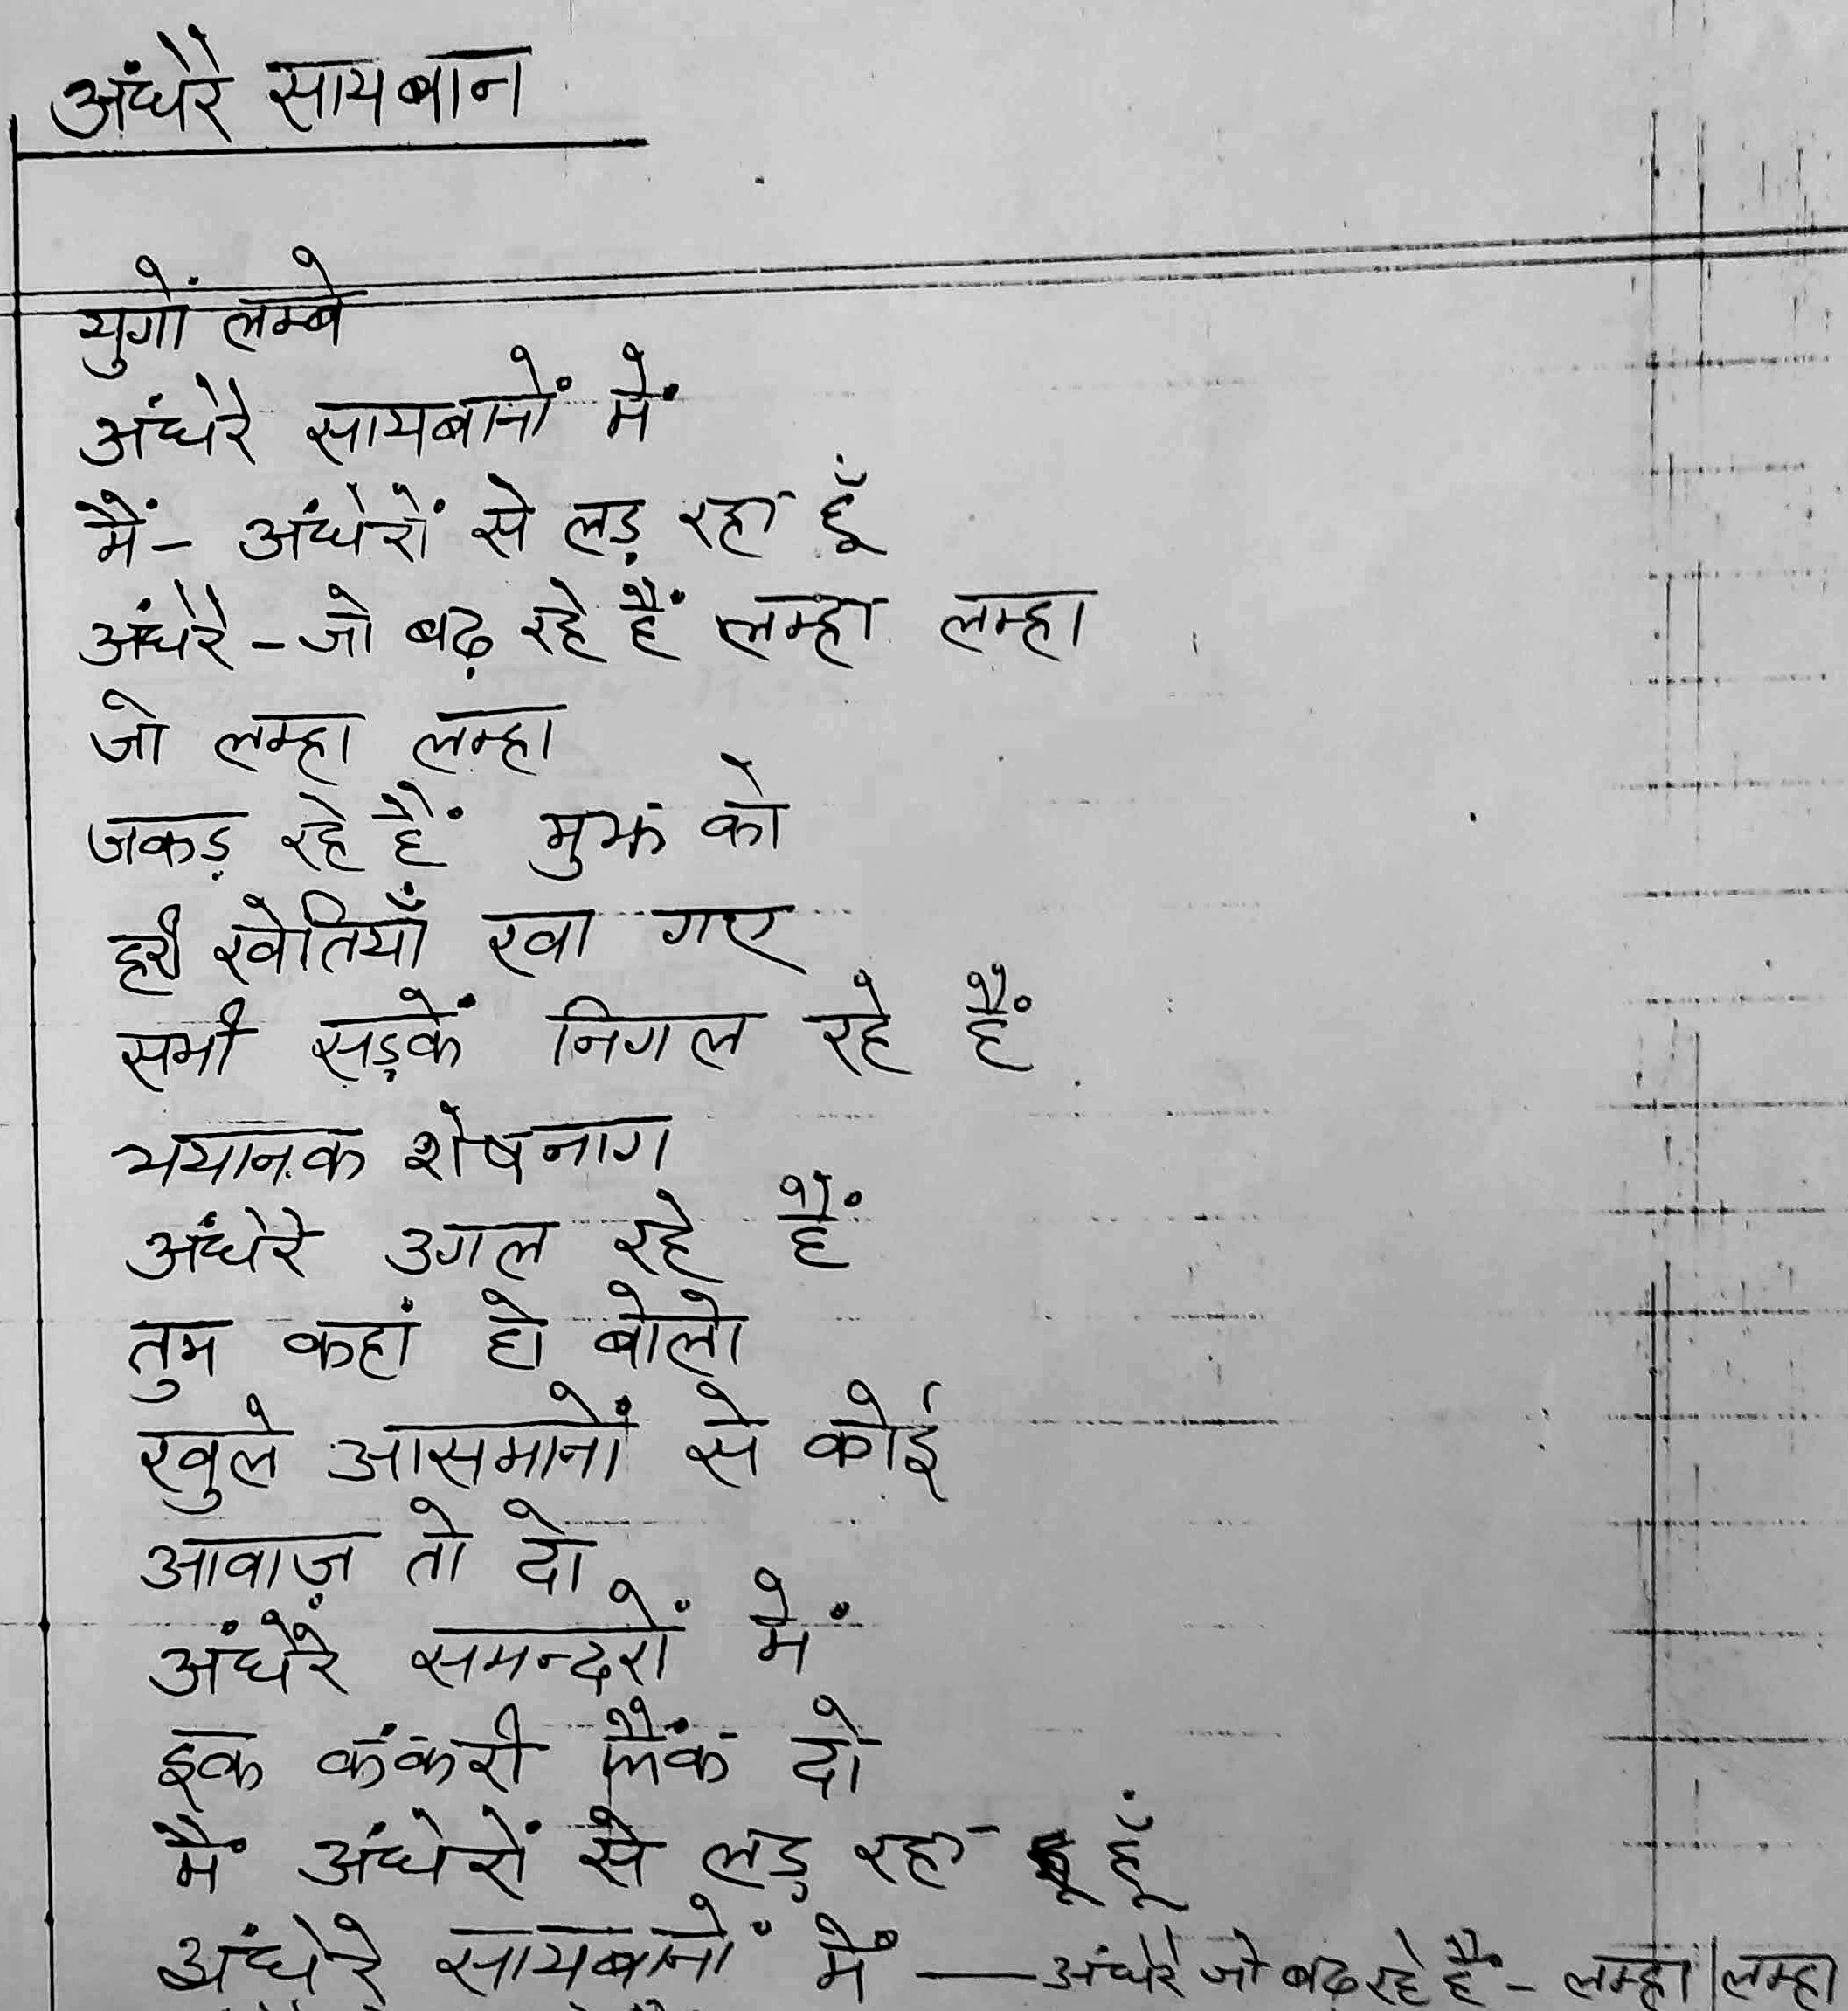 अंधेरे सायबान
युगों लम्बे
अंधेरे सायबानों में
मैं- अंधेरों से लड़ रहा हूँ
अंधेरे - जो बढ़ रहे हैं लम्हा लम्हा
जो लम्हा लम्हा
जकड़ रहे हैं मुझ को
हरी खेतियाँ खा गए
सभी सड़कें निगल रहे हैं
भयानक शेषनाग
अंधेरे उगल रहे हैं
तुम कहां हो बोलो
खुले आसमानों से कोई
आवाज़ तो दो
अंधेरे समन्दरों में
इक कंकरी फैंक दो
मैं अंधेरों से लड़ रहा हूँ
अंधेरे सायबानों में — अंधेरे जो बढ़ रहे हैं - लम्हा लम्हा